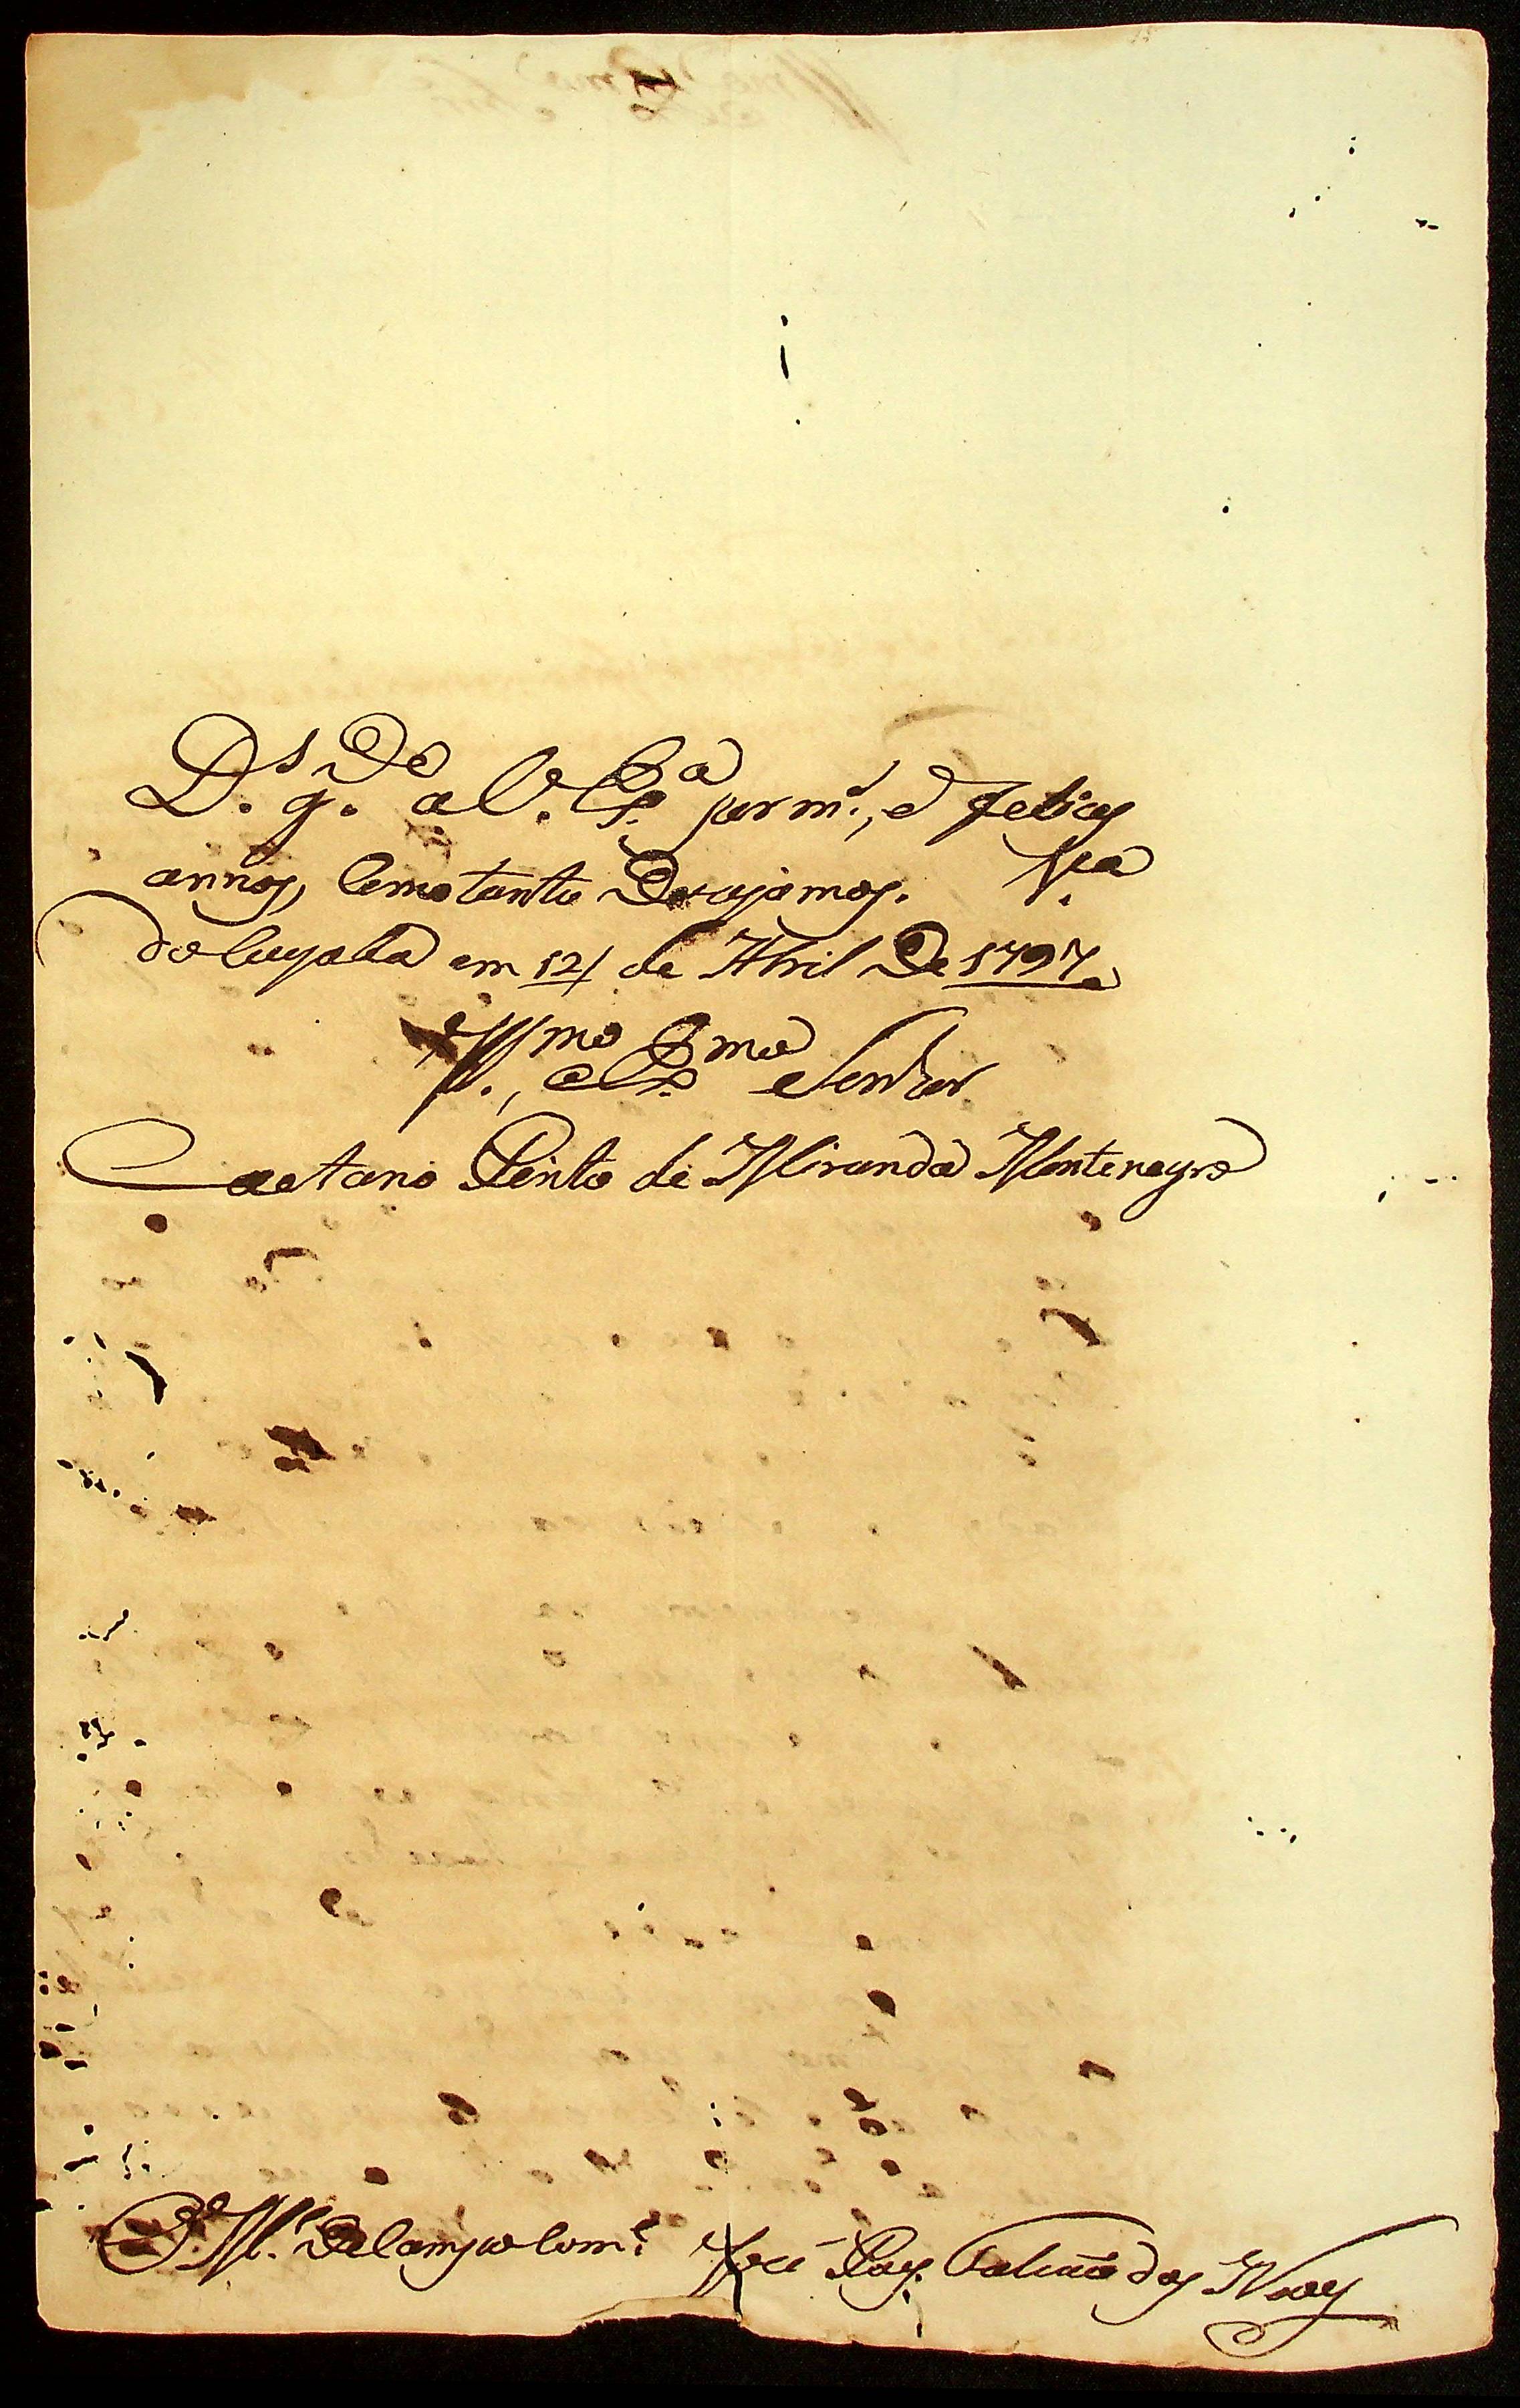 D.s g.de a V. Ex.a por m.s, e felices
annos, Como tanto Dezejamos. V.a
do Cuyaba em 12 de Abril De 1797
Ill.mo, e Ex.mo Senhor
Caetano Pinto de Miranda Montenegro
M.e De Campo Com.e José Paes Falcão das Neves